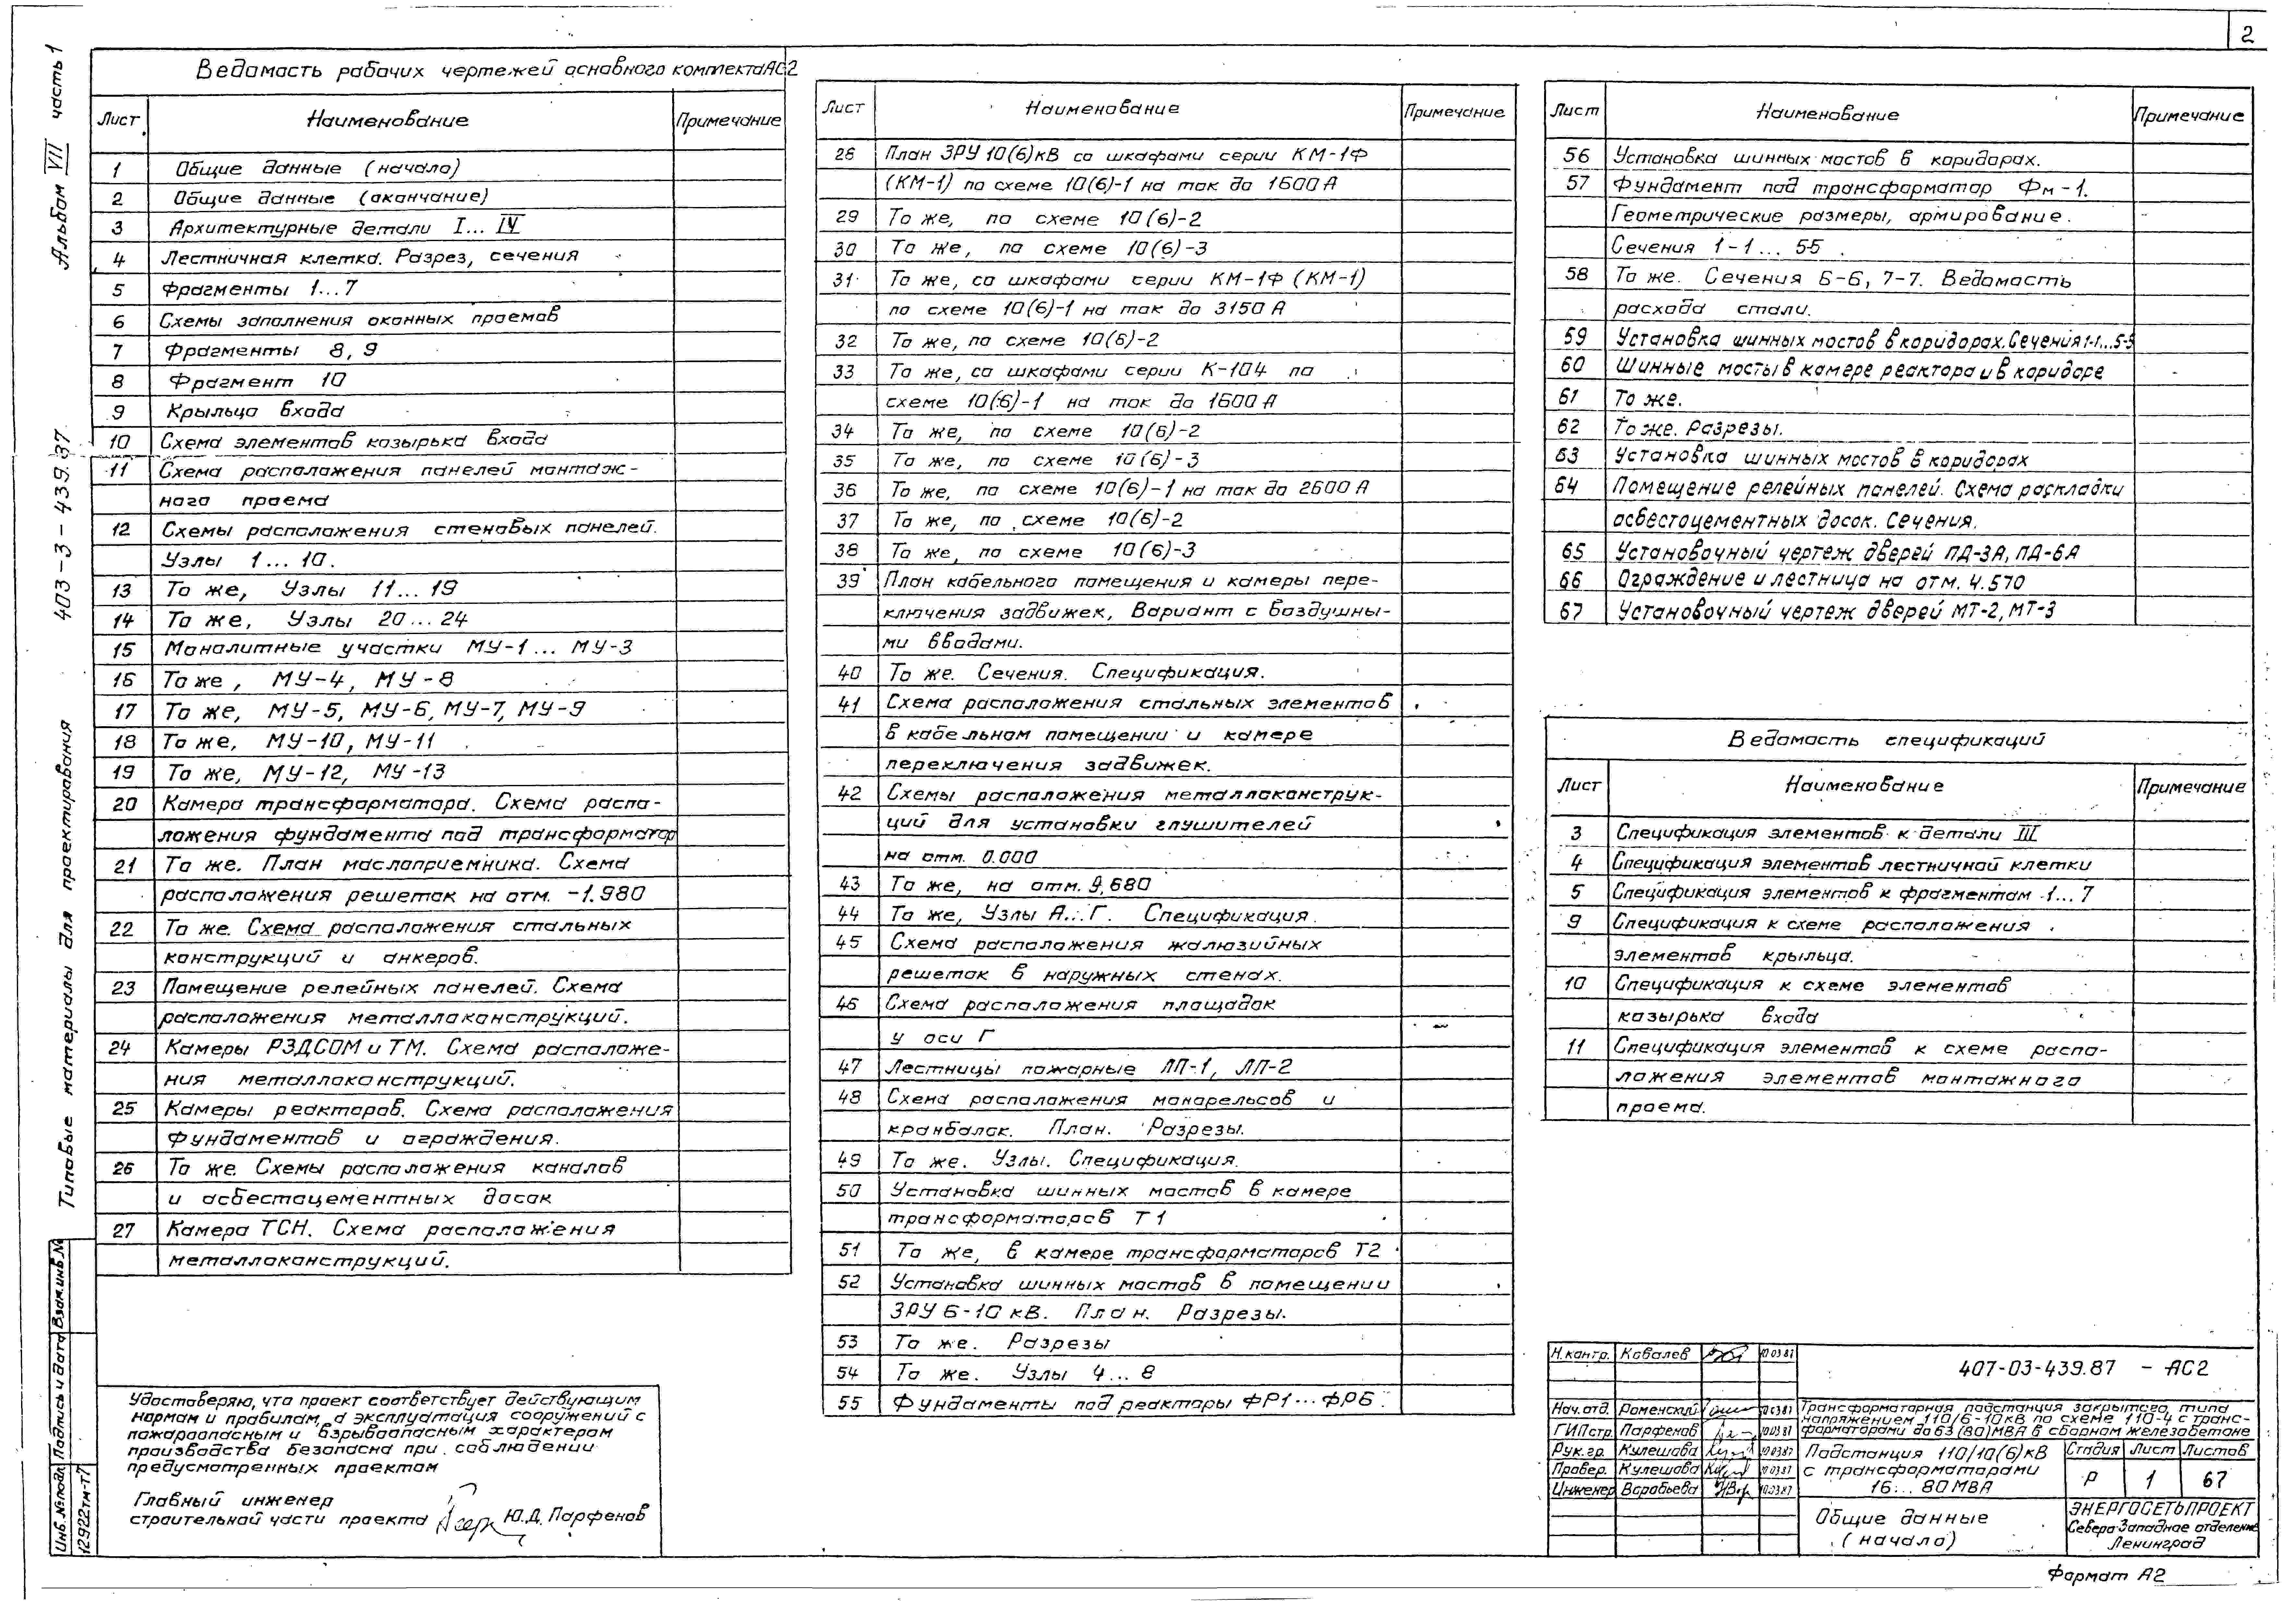 2
Альбом VII часть 1
403-3-439.87
Типовые материалы для проектирования
Взам.инв.№
Подпись и дата
Инв.№подл.
12922тм-т7
Ведомость рабочих чертежей основного комплекта АС2
Лист Наименование Примечание
1 Общие данные (начало)
2 Общие данные (окончание)
3 Архитектурные детали I... IV
4 Лестничная клетка. Разрез, сечения
5 Фрагменты 1...7
6 Схемы заполнения оконных проемов
7 Фрагменты 8, 9
8 Фрагмент 10
9 Крыльца входа
10 Схема элементов козырька входа
11 Схема расположения панелей монтаж-
ного проема
12 Схемы расположения стеновых панелей.
Узлы 1... 10.
13 То же, Узлы 11... 19
14 То же, Узлы 20... 24
15 Монолитные участки МУ-1... МУ-3
16 То же, МУ-4, МУ-8
17 То же, МУ-5, МУ-6, МУ-7, МУ-9
18 То же, МУ-10, МУ-11
19 То же, МУ-12, МУ-13
20 Камера трансформатора. Схема распо-
ложения фундамента под трансформатор
21 То же. План маслоприемника. Схема
расположения решеток на отм. -1.980
22 То же. Схема расположения стальных
конструкций и анкеров.
23 Помещение релейных панелей. Схема
расположения металлоконструкций.
24 Камеры РЗДСОМ и ТМ. Схема расположе-
ния металлоконструкций.
25 Камеры реакторов. Схема расположения
фундаментов и ограждения.
26 То же. Схемы расположения каналов
и асбестоцементных досок
27 Камера ТСН. Схема расположения
металлоконструкций.
Удостоверяю, что проект соответствует действующим
нормам и правилам, а эксплуатация сооружений с
пожароопасным и взрывоопасным характером
производства безопасна при соблюдении
предусмотренных проектом
Главный инженер
строительной части проекта Ю.Д. Парфенов
Лист Наименование Примечание
28 План ЗРУ 10(6)кВ со шкафами серии КМ-1Ф
(КМ-1) по схеме 10(6)-1 на ток до 1600 А
29 То же, по схеме 10(6)-2
30 То же, по схеме 10(6)-3
31 То же, со шкафами серии КМ-1Ф (КМ-1)
по схеме 10(6)-1 на ток до 3150 А
32 То же, по схеме 10(6)-2
33 То же, со шкафами серии К-104 по
схеме 10(6)-1 на ток до 1600 А
34 То же, по схеме 10(6)-2
35 То же, по схеме 10(6)-3
36 То же, по схеме 10(6)-1 на ток до 2600 А
37 То же, по схеме 10(6)-2
38 То же, по схеме 10(6)-3
39 План кабельного помещения и камеры пере-
ключения задвижек, Вариант с воздушны-
ми вводами.
40 То же. Сечения. Спецификация.
41 Схема расположения стальных элементов
в кабельном помещении и камере
переключения задвижек.
42 Схемы расположения металлоконструк-
ций для установки глушителей
на отм. 0.000
43 То же, на отм. 9,680
44 То же, Узлы А...Г. Спецификация.
45 Схема расположения жалюзийных
решеток в наружных стенах.
46 Схема расположения площадок
у оси Г
47 Лестницы пожарные ЛП-1, ЛП-2
48 Схема расположения монорельсов и
кранбалок. План. Разрезы.
49 То же. Узлы. Спецификация.
50 Установка шинных мостов в камере
трансформаторов Т1
51 То же, в камере трансформаторов Т2
52 Установка шинных мостов в помещении
ЗРУ 6-10 кВ. План. Разрезы.
53 То же. Разрезы
54 То же. Узлы 4... 8
55 Фундаменты под реакторы ФР1...ФР6.
Лист Наименование Примечание
56 Установка шинных мостов в коридорах.
57 Фундамент под трансформатор Фм-1.
Геометрические размеры, армирование.
Сечения 1-1... 5-5.
58 То же. Сечения 6-6, 7-7. Ведомость
расхода стали.
59 Установка шинных мостов в коридорах. Сечения 1-1...5-5
60 Шинные мосты в камере реактора и в коридоре
61 То же.
62 То же. Разрезы.
63 Установка шинных мостов в коридорах
64 Помещение релейных панелей. Схема раскладки
асбестоцементных досок. Сечения.
65 Установочный чертеж дверей ПД-3А, ПД-6А
66 Ограждение и лестница на отм. 4.570
67 Установочный чертеж дверей МТ-2, МТ-3
Ведомость спецификаций
Лист Наименование Примечание
3 Спецификация элементов к детали III
4 Спецификация элементов лестничной клетки
5 Спецификация элементов к фрагментам 1...7
9 Спецификация к схеме расположения
элементов крыльца.
10 Спецификация к схеме элементов
козырька входа
11 Спецификация элементов к схеме распо-
ложения элементов монтажного
проема.
Н.контр. Ковалев 10.03.87
Нач.отд. Роменский 10.03.87
ГИП стр. Парфенов 10.03.87
Рук.гр. Кулешова 10.03.87
Провер. Кулешова 10.03.87
Инженер Воробьева 10.03.87
407-03-439.87 - АС2
Трансформаторная подстанция закрытого типа
напряжением 110/6-10кВ по схеме 110-4 с транс-
форматорами до 63(80)МВА в сборном железобетоне
Подстанция 110/10(6)кВ
с трансформаторами
16... 80 МВА
Стадия Лист Листов
Р 1 67
Общие данные
(начало)
ЭНЕРГОСЕТЬПРОЕКТ
Северо-Западное отделение
Ленинград
Формат А2